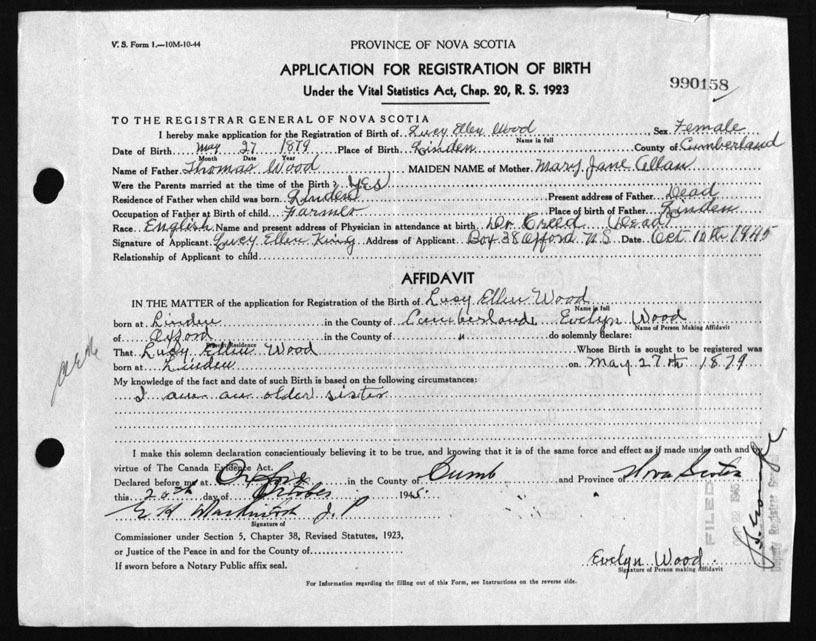 V. S. Form 1.—10M-10-44
PROVINCE OF NOVA SCOTIA
APPLICATION FOR REGISTRATION OF BIRTH
Under the Vital Statistics Act, Chap. 20, R. S. 1923
990158
TO THE REGISTRAR GENERAL OF NOVA SCOTIA
I hereby make application for the Registration of Birth of Lucy Ellen Wood Sex Female
Name in full
Date of Birth May 27 1879 Place of Birth Linden County of Cumberland
Month Date Year
Name of Father Thomas Wood MAIDEN NAME of Mother Mary Jane Allan
Were the Parents married at the time of the Birth? Yes
Residence of Father when child was born Linden Present address of Father Dead
Occupation of Father at Birth of child Farmer Place of birth of Father Linden
Race English Name and present address of Physician in attendance at birth Dr Creed (Dead)
Signature of Applicant Lucy Ellen King Address of Applicant Box 38 Oxford N.S. Date Oct 10th 1945
Relationship of Applicant to child
AFFIDAVIT
IN THE MATTER of the application for Registration of the Birth of Lucy Ellen Wood
Name in full
born at Linden in the County of Cumberland Evelyn Wood
Name of Person Making Affidavit
of Oxford in the County of " do solemnly declare:
Present Residence
That Lucy Ellen Wood Whose Birth is sought to be registered was
born at Linden on May 27th 1879
My knowledge of the fact and date of such Birth is based on the following circumstances:
I am an older sister
I make this solemn declaration conscientiously believing it to be true, and knowing that it is of the same force and effect as if made under oath and
virtue of The Canada Evidence Act.
Declared before me at Oxford in the County of Cumb and Province of Nova Scotia
this day of October 1945.
J. P
Signature of
Commissioner under Section 5, Chapter 38, Revised Statutes, 1923,
or Justice of the Peace in and for the County of
If sworn before a Notary Public affix seal.
FILED
Deputy Registrar General
Evelyn Wood
Signature of Person making Affidavit
For Information regarding the filling out of this Form, see Instructions on the reverse side.